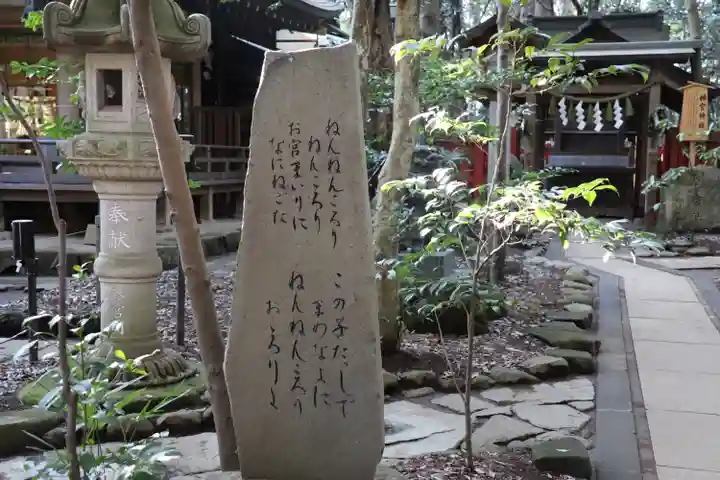 ねんねんころり
ねんころり
お宮まいりに
なにねごた
この子たっしゃで
まめなよに
ねんねんころり
おころりよ
奉献